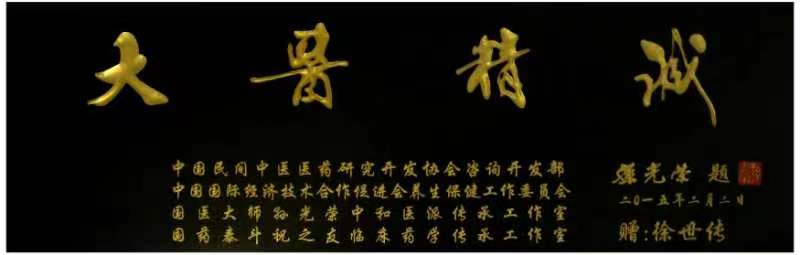 大医精诚
中国民间中医医药研究开发协会咨询开发部
中国国际经济技术合作促进会养生保健工作委员会
国医大师孙光荣中和医派传承工作室
国药泰斗祝之友临床药学传承工作室
孫光荣 题
二〇一五年二月二日
赠:徐世传